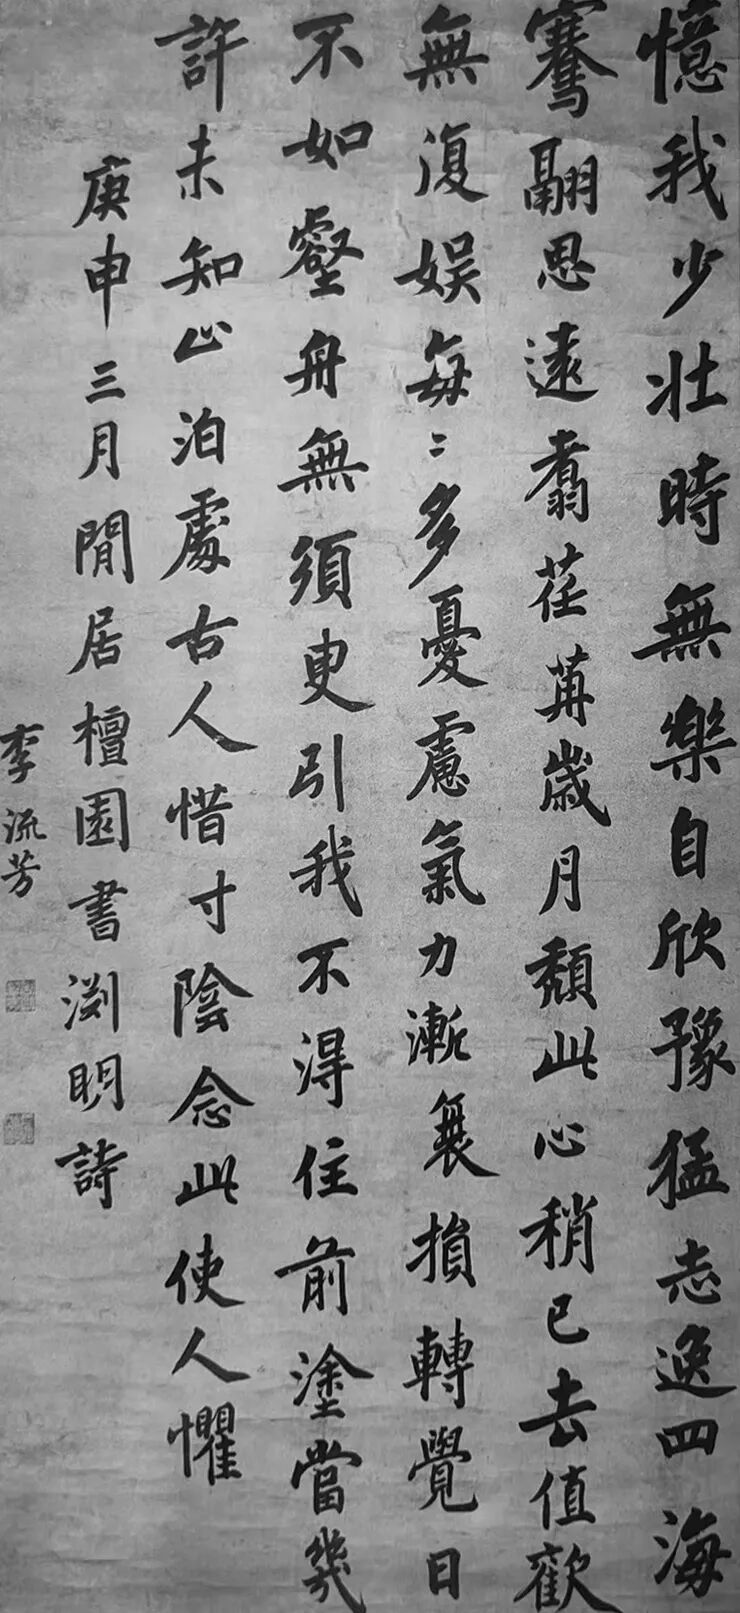 憶我少壯時無樂自欣豫猛志逸四海
騫翮思遠翥荏苒歲月頹此心稍已去值歡
無復娛每〻多憂慮氣力漸衰損轉覺日
不如壑舟無須臾引我不得住前塗當幾
許未知止泊處古人惜寸陰念此使人懼
庚申三月閒居檀園書渕明詩
李流芳